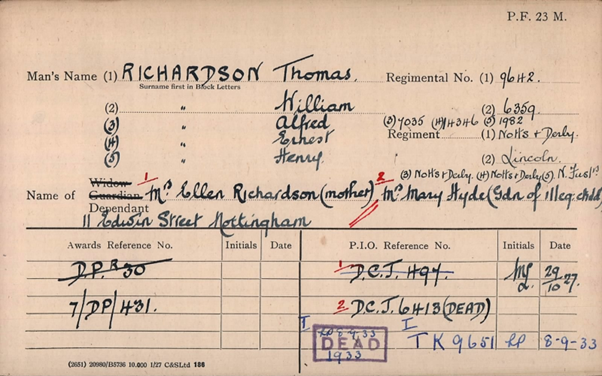 P.F. 23 M.
Man's Name (1) RICHARDSON Thomas. Regimental No. (1) 9642.
Surname first in Block Letters
(2) " William (2) 6359
(3) " Alfred (3) 7035 (4) 4346 (5) 1982
(4) " Ernest Regiment (1) Notts & Derby.
(5) " Henry. (2) Lincoln.
(3) Notts & Derby. (4) Notts & Derby (5) N. Fus
Widow 1 2
Name of Guardian Mrs Ellen Richardson (mother) Mrs Mary Hyde (Gdn of Illeg. child)
Dependant
11 Edwin Street Nottingham
Awards Reference No. Initials Date P.I.O. Reference No. Initials Date
D.P. R 30 1 D.C.J. 497. 29/10/27.
7/DP/431. 2 D.C.J. 6413 (DEAD)
DEAD
1933
I TK 9651 8-9-33
(2651) 20980/B5736 10,000 1/27 C&S Ltd 186